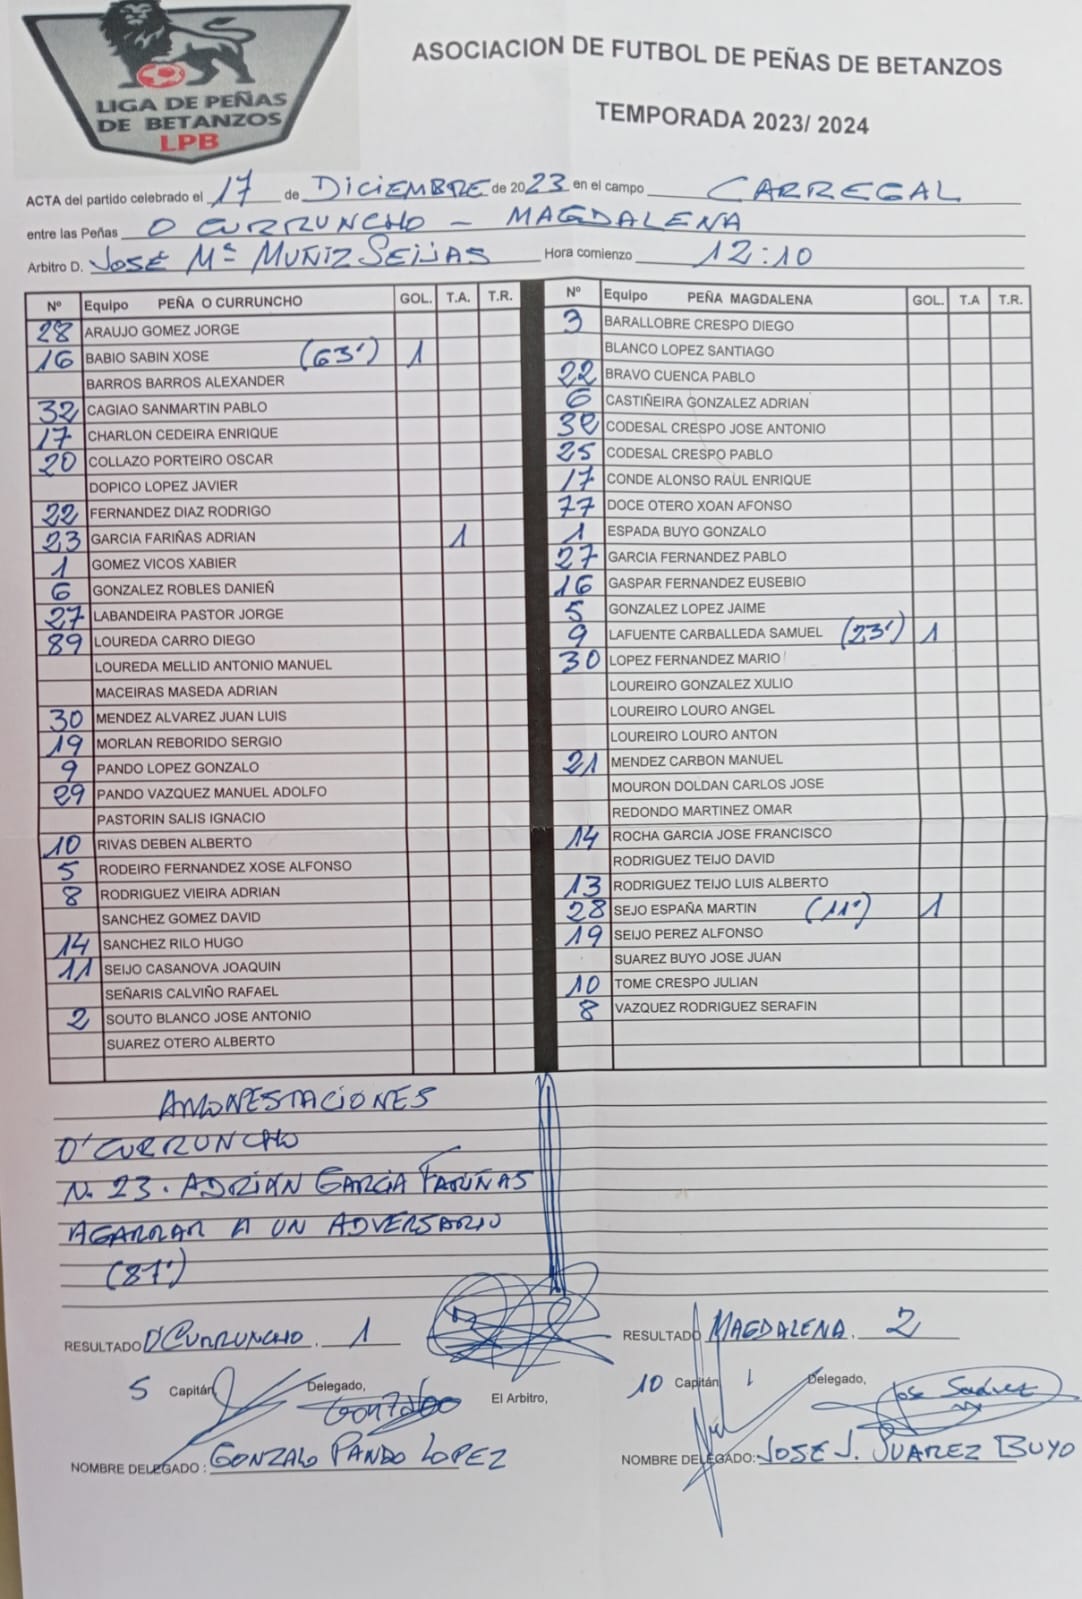 LIGA DE PEÑAS
DE BETANZOS
LPB
ASOCIACION DE FUTBOL DE PEÑAS DE BETANZOS
TEMPORADA 2023/ 2024
ACTA del partido celebrado el 17 de DICIEMBRE de 2023 en el campo CARREGAL
entre las Peñas O CURRUNCHO - MAGDALENA
Arbitro D. JOSÉ Mª MUÑIZ SEIJAS Hora comienzo 12:10
Nº Equipo PEÑA O CURRUNCHO GOL. T.A. T.R. Nº Equipo PEÑA MAGDALENA GOL. T.A T.R.
28 ARAUJO GOMEZ JORGE 3 BARALLOBRE CRESPO DIEGO
16 BABIO SABIN XOSE (63') 1 BLANCO LOPEZ SANTIAGO
BARROS BARROS ALEXANDER 22 BRAVO CUENCA PABLO
32 CAGIAO SANMARTIN PABLO 6 CASTIÑEIRA GONZALEZ ADRIAN
17 CHARLON CEDEIRA ENRIQUE CODESAL CRESPO JOSE ANTONIO
20 COLLAZO PORTEIRO OSCAR 25 CODESAL CRESPO PABLO
DOPICO LOPEZ JAVIER 17 CONDE ALONSO RAUL ENRIQUE
22 FERNANDEZ DIAZ RODRIGO 77 DOCE OTERO XOAN AFONSO
23 GARCIA FARIÑAS ADRIAN 1 1 ESPADA BUYO GONZALO
1 GOMEZ VICOS XABIER 27 GARCIA FERNANDEZ PABLO
6 GONZALEZ ROBLES DANIEÑ 16 GASPAR FERNANDEZ EUSEBIO
27 LABANDEIRA PASTOR JORGE 5 GONZALEZ LOPEZ JAIME
89 LOUREDA CARRO DIEGO 9 LAFUENTE CARBALLEDA SAMUEL (23') 1
LOUREDA MELLID ANTONIO MANUEL 30 LOPEZ FERNANDEZ MARIO
MACEIRAS MASEDA ADRIAN LOUREIRO GONZALEZ XULIO
30 MENDEZ ALVAREZ JUAN LUIS LOUREIRO LOURO ANGEL
19 MORLAN REBORIDO SERGIO LOUREIRO LOURO ANTON
9 PANDO LOPEZ GONZALO 21 MENDEZ CARBON MANUEL
29 PANDO VAZQUEZ MANUEL ADOLFO MOURON DOLDAN CARLOS JOSE
PASTORIN SALIS IGNACIO REDONDO MARTINEZ OMAR
10 RIVAS DEBEN ALBERTO 14 ROCHA GARCIA JOSE FRANCISCO
5 RODEIRO FERNANDEZ XOSE ALFONSO RODRIGUEZ TEIJO DAVID
8 RODRIGUEZ VIEIRA ADRIAN 13 RODRIGUEZ TEIJO LUIS ALBERTO
SANCHEZ GOMEZ DAVID 28 SEJO ESPAÑA MARTIN (11') 1
14 SANCHEZ RILO HUGO 19 SEIJO PEREZ ALFONSO
11 SEIJO CASANOVA JOAQUIN SUAREZ BUYO JOSE JUAN
SEÑARIS CALVIÑO RAFAEL 10 TOME CRESPO JULIAN
2 SOUTO BLANCO JOSE ANTONIO 8 VAZQUEZ RODRIGUEZ SERAFIN
SUAREZ OTERO ALBERTO
AMONESTACIONES
O'CURRUNCHO
N. 23. ADRIÁN GARCIA FARIÑAS
AGARRAR A UN ADVERSARIO
(87')
RESULTADO O'CURRUNCHO. 1 RESULTADO MAGDALENA. 2
5 Capitán, Delegado, El Arbitro, 10 Capitán, Delegado,
Gonzalo Jose Suárez
NOMBRE DELEGADO : GONZALO PANDO LOPEZ NOMBRE DELEGADO: JOSE J. SUAREZ BUYO